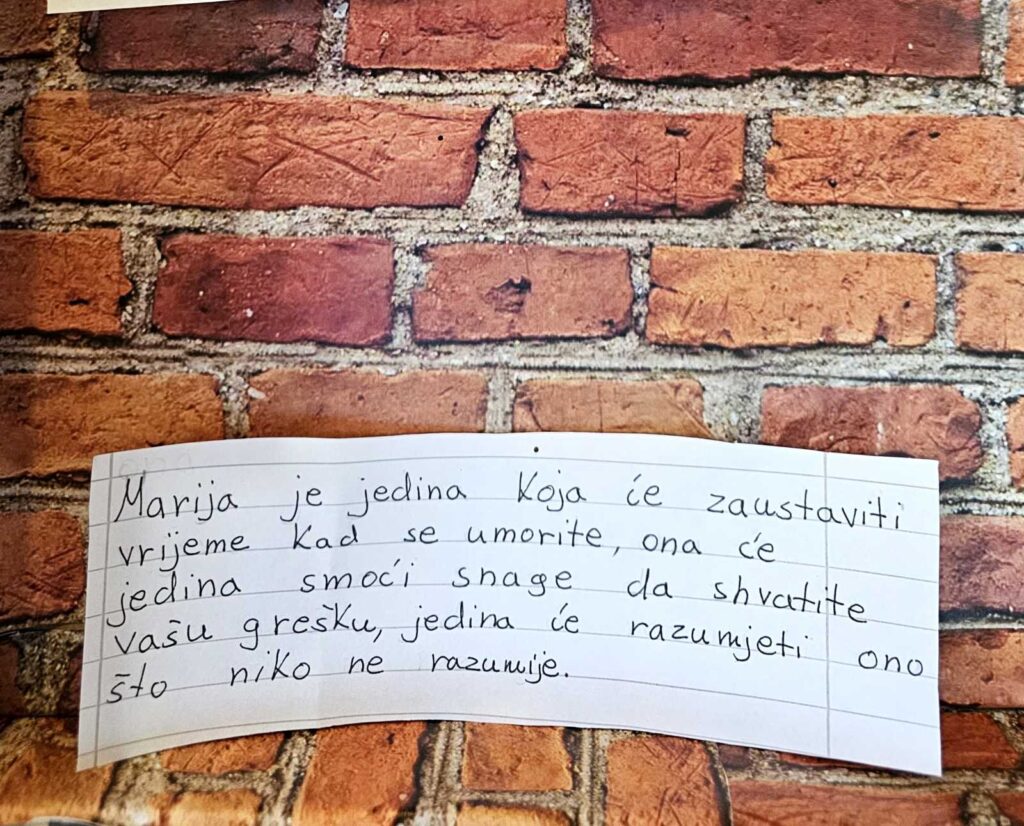 Marija je jedina koja će zaustaviti
vrijeme kad se umorite, ona će
jedina smoći snage da shvatite
vašu grešku, jedina će razumjeti ono
što niko ne razumije.